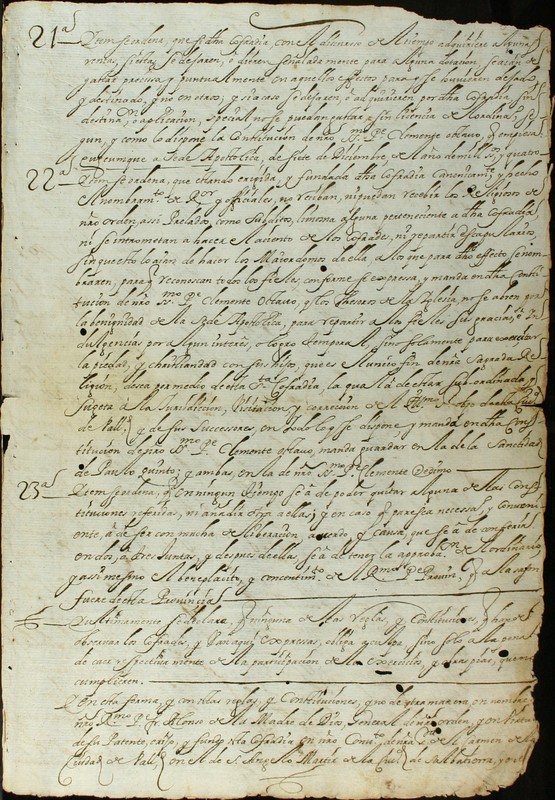 21ª Yten se ordena, que si dha Cofradia, con el discurso del tiempo adquiriere alguna
renta, si esta se dejaren, o dieren señalada mente para alguna dotacion, se ayan de
gastar precissa y puntual mente en aquellos effectos para que se huvieren dejado,
y destinado, y no en otros; si acaso se dejaren, o adquirieren por dha Cofradia sin
destina,on o aplicacion, special no se puedan gastar sin licencia del Ordinario, se
gun, y como lo dispone la Constitucion de nro SSmo Pe Clemente octavo, q empiesa
Quecumque a Sede Apostolica, de siete de Diciembre, del año de mill, y quatro
22ª Yten se ordena, que estando erigida, y fundada dha Cofradia Canonicamte, y hecho
el nombramto de Ror y officiales, no reciban, ni puedan recebir los Religiosos de
nra orden, assi Prelados, como Subditos, limosna alguna perteneciente a dha Cofradia,
ni se intrometan a hacer assiento de los Cofrades, ni repartir escapularios,
sino que esto lo ayan de hacer los Maiordomos de ella, o los que para dho effecto se nom
braren, para q reconoscan todos los fieles, conforme se expressa, y manda en dha Consti
tucion de nro SSmo Pe Clemente Octavo, q los thesoros de la Yglesia, no se abren por
la benignidad de la Sede Apostolica, para repartir a los fieles sus gracias, e In
dulgencias por algun interes, o logro temporal, sino solamente para exercitar
la piedad, y charidad con sus hijos, que es el unico fin de nra Sagrada Re
ligion, desea por medio de esta Sta Cofradia, la qual a de estar subordinada, y
sugeta a la Jurisdiccion, Visitacion, y correccion del Yllmo Obpo
de Valld y de sus Successores, en todo lo q se dispone y manda en dha Cons
titucion de nro SSmo Pe Clemente octavo, mandada guardar en la de la Sanctidad
de Paulo quinto; y ambas, en la de nro SSmo Pe Clemente Decimo
23ª Yten se ordena, q en ningun tiempo se a de poder quitar alguna de las Cons
tituciones referidas, ni añadir otra a ellas; y en caso q paresca necessario, y conveni
ente, a de ser con mucha deliberacion, acuerdo, y causa, que se a de conferir
en dos, o tres Juntas, y despues de ellas, se a de tener la approbaon del ordinario
y assi mesmo el beneplacito, y consentimto del Rmo Pe Provinl, q a la sason
fuere de esta Provincia
Y ultimamente se declara, q ninguna de las reglas, y Constituciones, q han de
observar los Cofrades, y van aqui expressas, obliga a culpa, sino solo a la pena
de carecer respectiva mente de la participacion de los exercicios, y obras pias, que no
cumplieren.
En esta forma, y con estas reglas, y Constituciones, y no de otra manera, en nombre
de nro Rmo Pe Fr Alonso de la Madre de Dios, General de nra orden, y en virtud
de su Patente, erijo, y fundo esta Cofradia en nro Convto de nra Sra del Carmen de la
Ciudad de Valld en el de S. Angelo Martir de la Ciud de Salbatierra, y en el